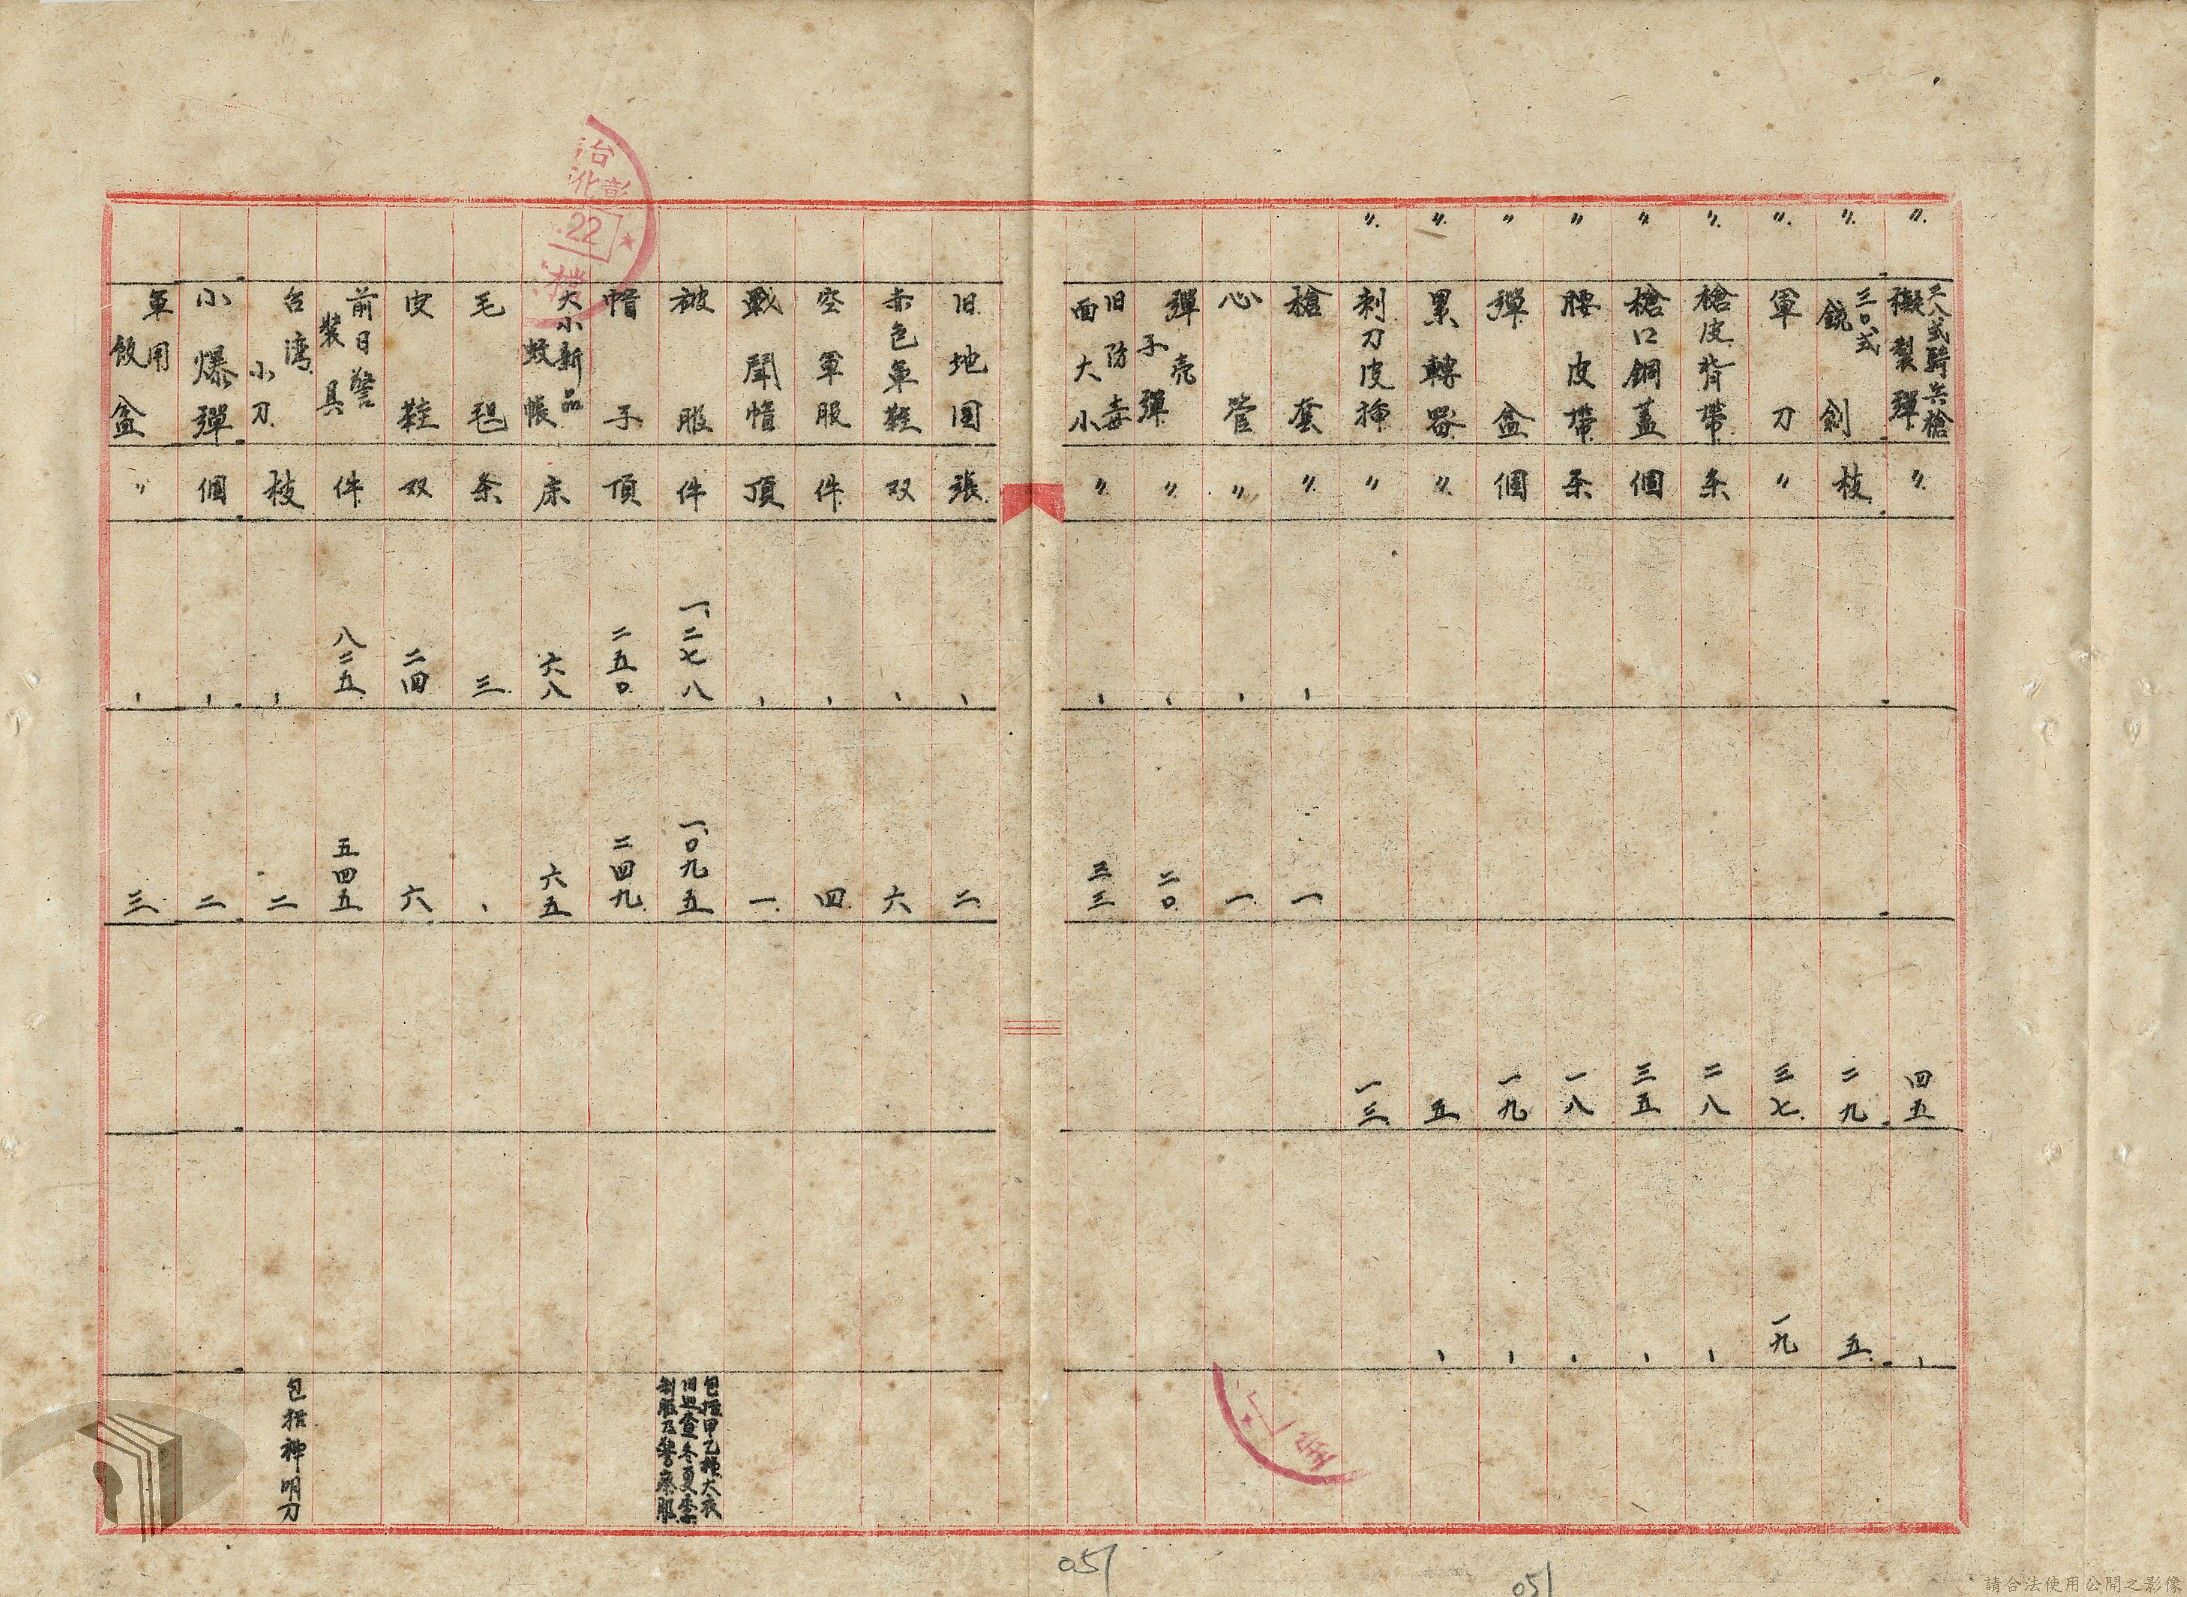 〃 三八式騎兵槍擬製彈 〃 四五 、
〃 三〇式銃劍 枝 二九 五
〃 軍刀 〃 三七 一九
〃 槍皮背帶 条 二八 、
〃 槍口鋼蓋 個 三五 、
〃 腰皮帶 条 一八 、
〃 彈盒 個 一九 、
〃 累轉器 〃 五 、
〃 刺刀皮揷 〃 一三
槍套 〃 、 一
心管 〃 、 一
彈壳子彈 〃 、 二〇
旧防毒面大小 〃 、 三三
旧地図 張 、 二
赤色軍鞋 双 、 六
空軍服 件 、 四
戰鬪帽 頂 、 一
被服 件 一、二七八 一、〇九五 包括甲乙種大衣旧巡查冬夏季制服及警察服
帽子 頂 二五〇 二四九
大小新品蚊帳 床 六八 六五
毛毯 条 三 、
皮鞋 双 二四 六
前日警裝具 件 八二五 五四五
台湾小刀 枝 、 二 包括神明刀
小爆彈 個 、 二
軍用飯盒 〃 、 三
台
彰化
.22
檔
051
051
請合法使用公開之影像